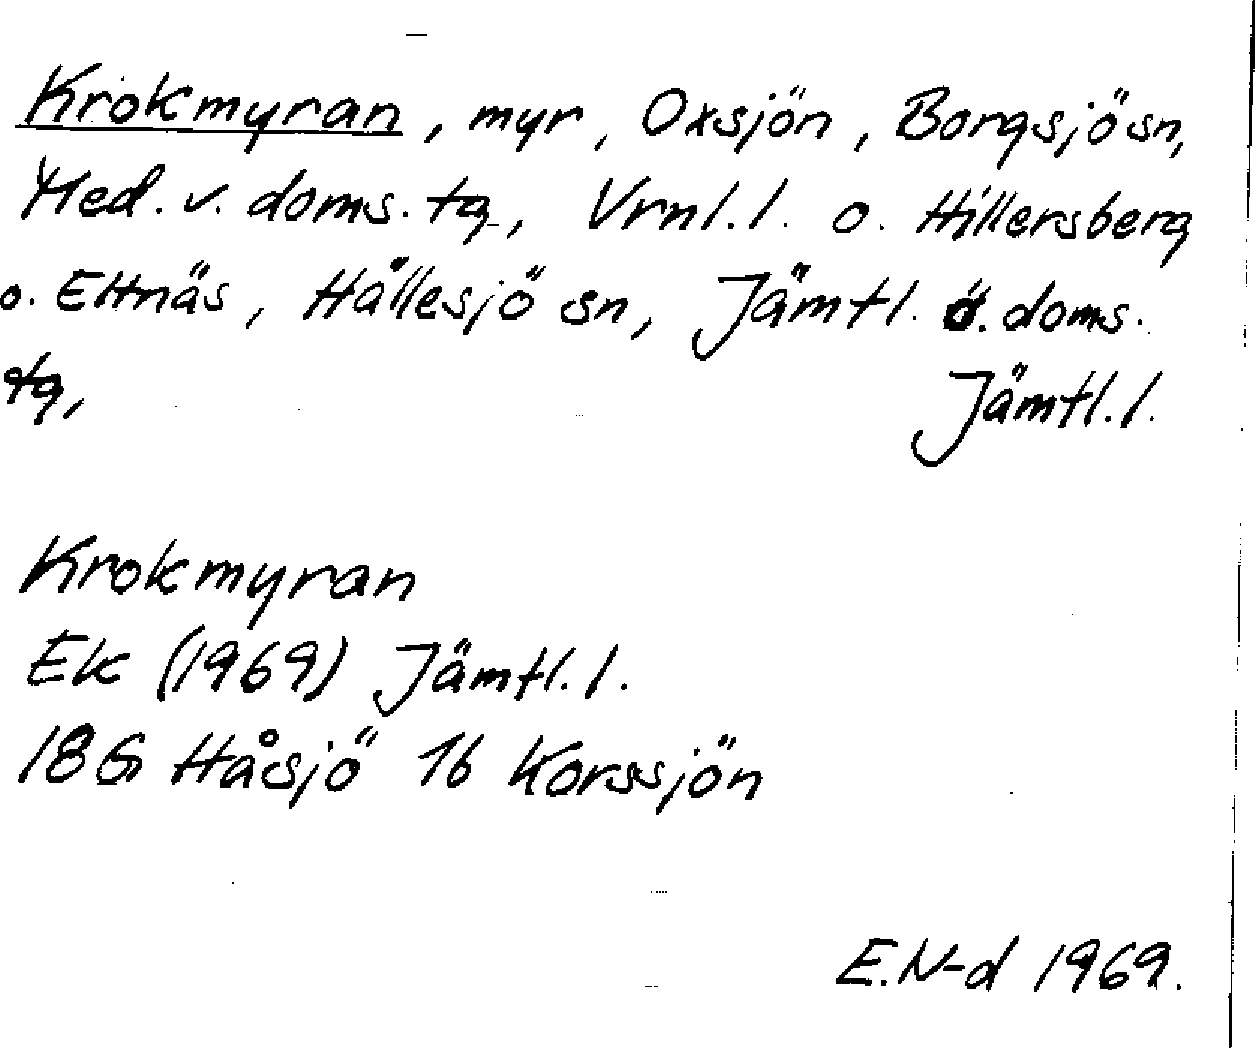 Krokmyran, myr, Oxsjön, Borgsjö sn,
Med. v. doms. tg, Vrnl. l. o. Hillersberg
o. Ettnäs, Hällesjö sn, Jämtl. ö. doms.
tg, Jämtl. l.
Krokmyran
Ek (1969) Jämtl. l.
18G Håsjö 16 Korssjön
E. N-d 1969.